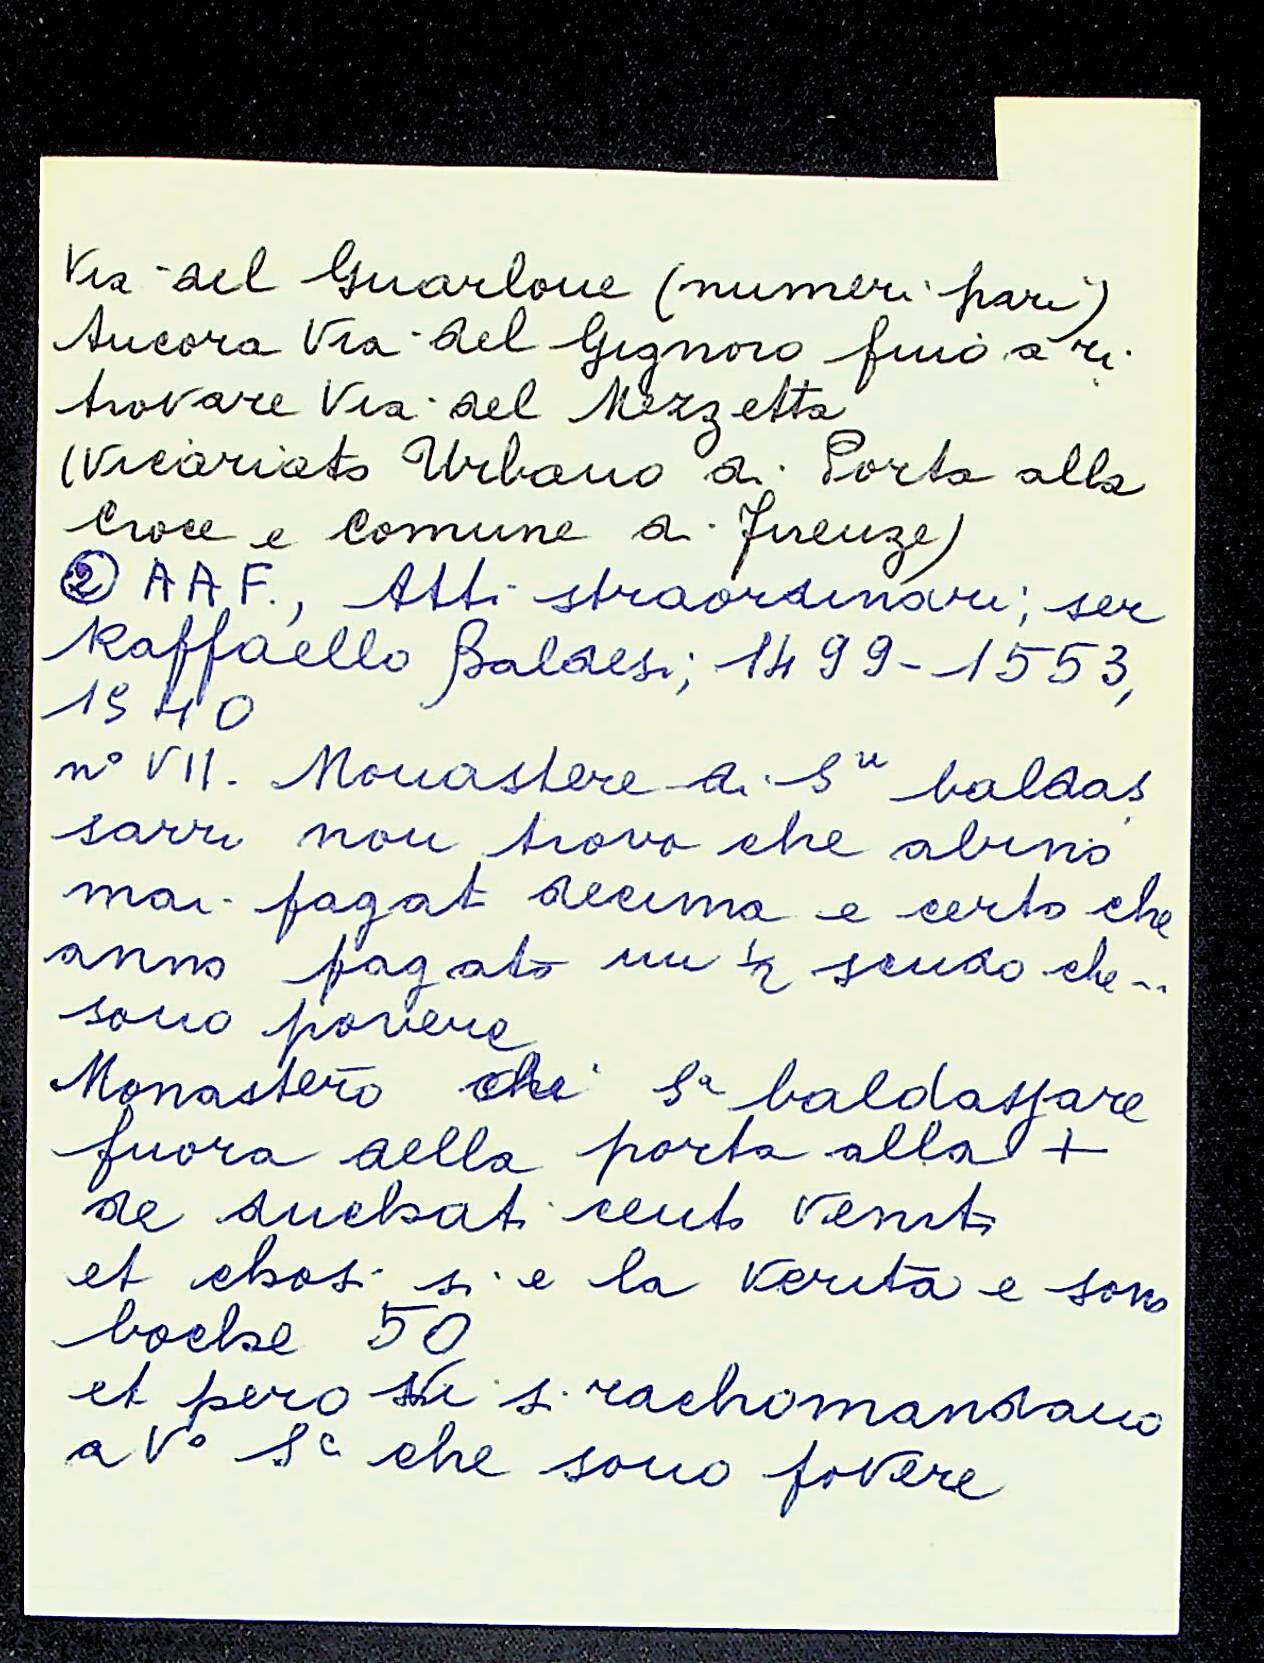 Via del Guarlone (numeri pari)
Ancora Via del Gignoro fino a ri-
trovare Via del Mezzetta
(Vicariato Urbano di Porta alla
Croce e Comune di Firenze)
② AAF., Atti straordinari; ser
Raffaello Baldesi; 1499-1553,
1540
n° VII. Monastere di Sᵗⁱ baldas
sarri non trovo che abino
mai pagat decima e certo che
anno pagato un ½ scudo che..
sono povere
Monastero che Sᵃ baldassare
fuora della porta alla +
de duchati cento venti
et chosi si e la verita e sono
boche 50
et pero si rachomandano
a Vᵒ Sᵃ che sono povere